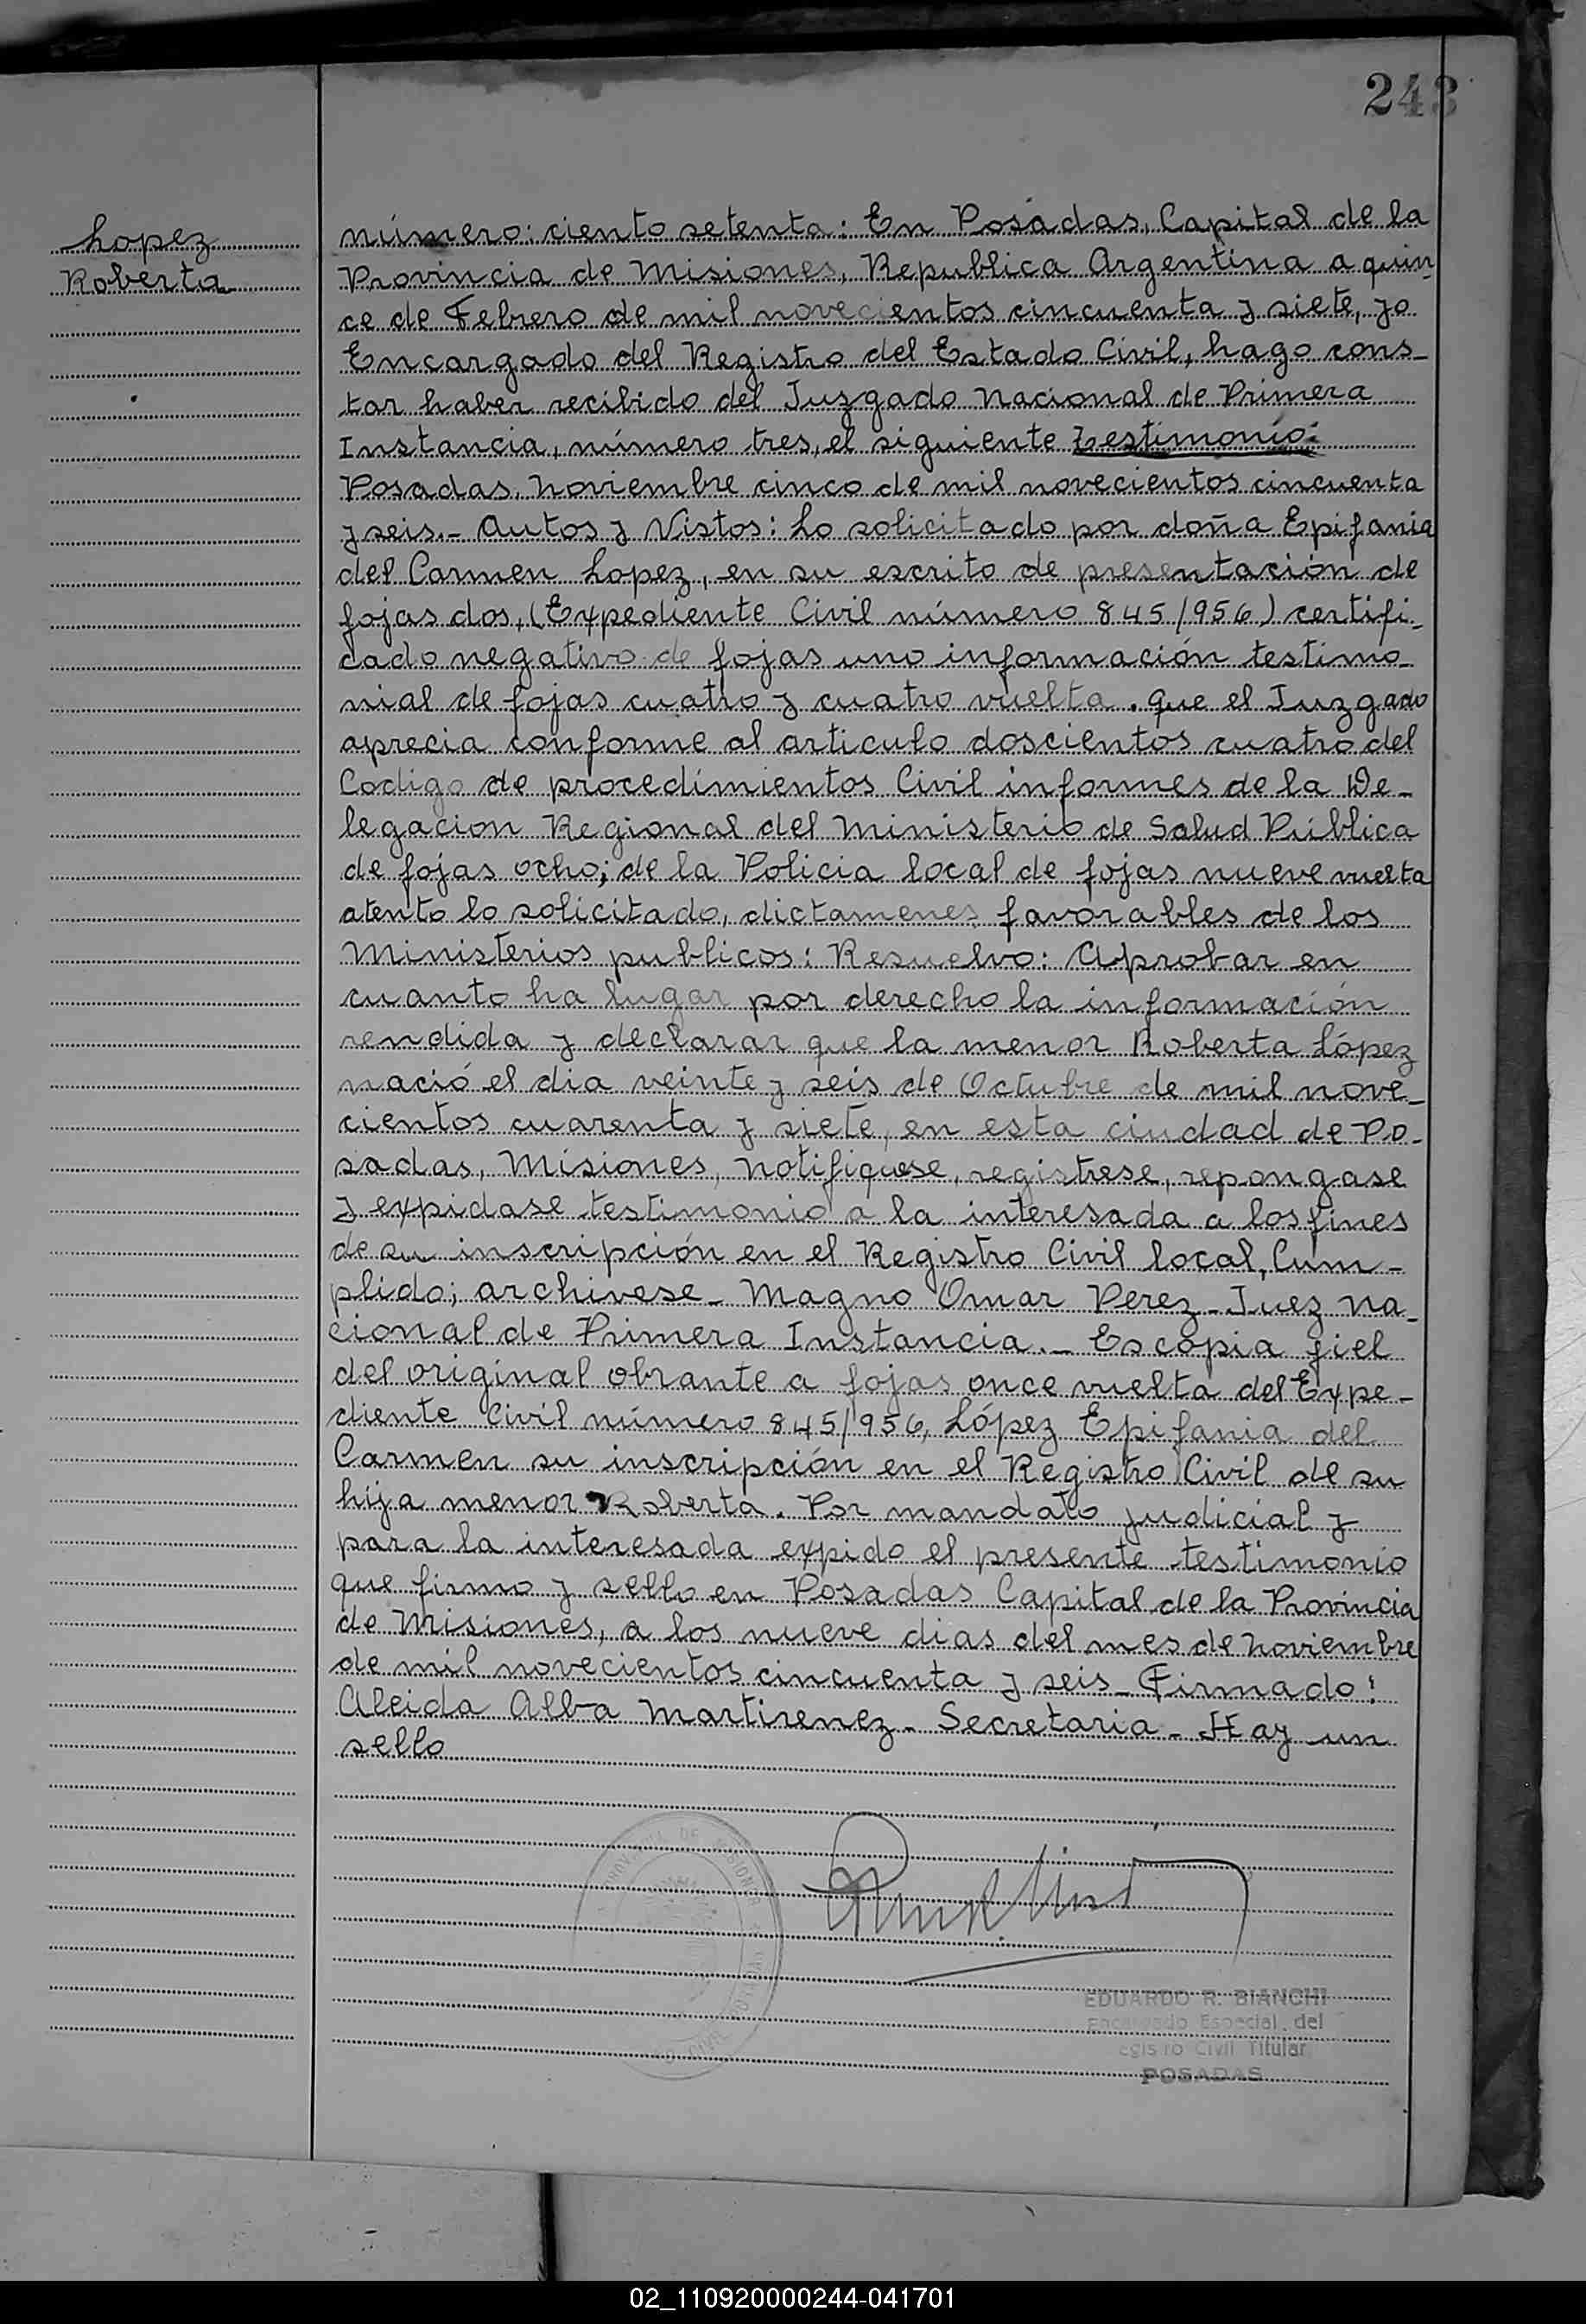 243
Lopez
Roberta
número: ciento setenta: En Posadas, Capital de la
Provincia de Misiones, Republica Argentina a quin-
ce de Febrero de mil novecientos cincuenta y siete, yo
Encargado del Registro del Estado Civil, hago cons-
tar haber recibido del Juzgado Nacional de Primera
Instancia, número tres, el siguiente Testimonio:
Posadas, noviembre cinco de mil novecientos cincuenta
y seis.- Autos y Vistos: Lo solicitado por doña Epifania
del Carmen Lopez, en su escrito de presentación de
fojas dos, (Expediente Civil número 845/956) certifi-
cado negativo de fojas uno información testimo-
nial de fojas cuatro y cuatro vuelta. que el Juzgado
aprecia conforme al articulo doscientos cuatro del
Codigo de procedimientos Civil informes de la De-
legacion Regional del Ministerio de Salud Pública
de fojas ocho; de la Policia local de fojas nueve vuelta
atento lo solicitado, dictamenes favorables de los
Ministerios publicos: Resuelvo: Aprobar en
cuanto ha lugar por derecho la información
rendida y declarar que la menor Roberta López
nació el dia veinte y seis de Octubre de mil nove-
cientos cuarenta y siete, en esta ciudad de Po-
sadas, Misiones, notifiquese, registrese, repongase
y expidase testimonio a la interesada a los fines
de su inscripción en el Registro Civil local, Cum-
plido; archivese- Magno Omar Perez- Juez Na-
cional de Primera Instancia.- Es copia fiel
del original obrante a fojas once vuelta del Expe-
diente Civil número 845/956, López Epifania del
Carmen su inscripción en el Registro Civil de su
hija menor Roberta. Por mandato judicial y
para la interesada expido el presente testimonio
que firmo y sello en Posadas Capital de la Provincia
de Misiones, a los nueve dias del mes de noviembre
de mil novecientos cincuenta y seis- Firmado:
Aleida Alba Martirenez- Secretaria- Hay un
sello
EDUARDO R. BIANCHI
Encargado Especial del
egistro Civil Titular
POSADAS
02_110920000244-041701